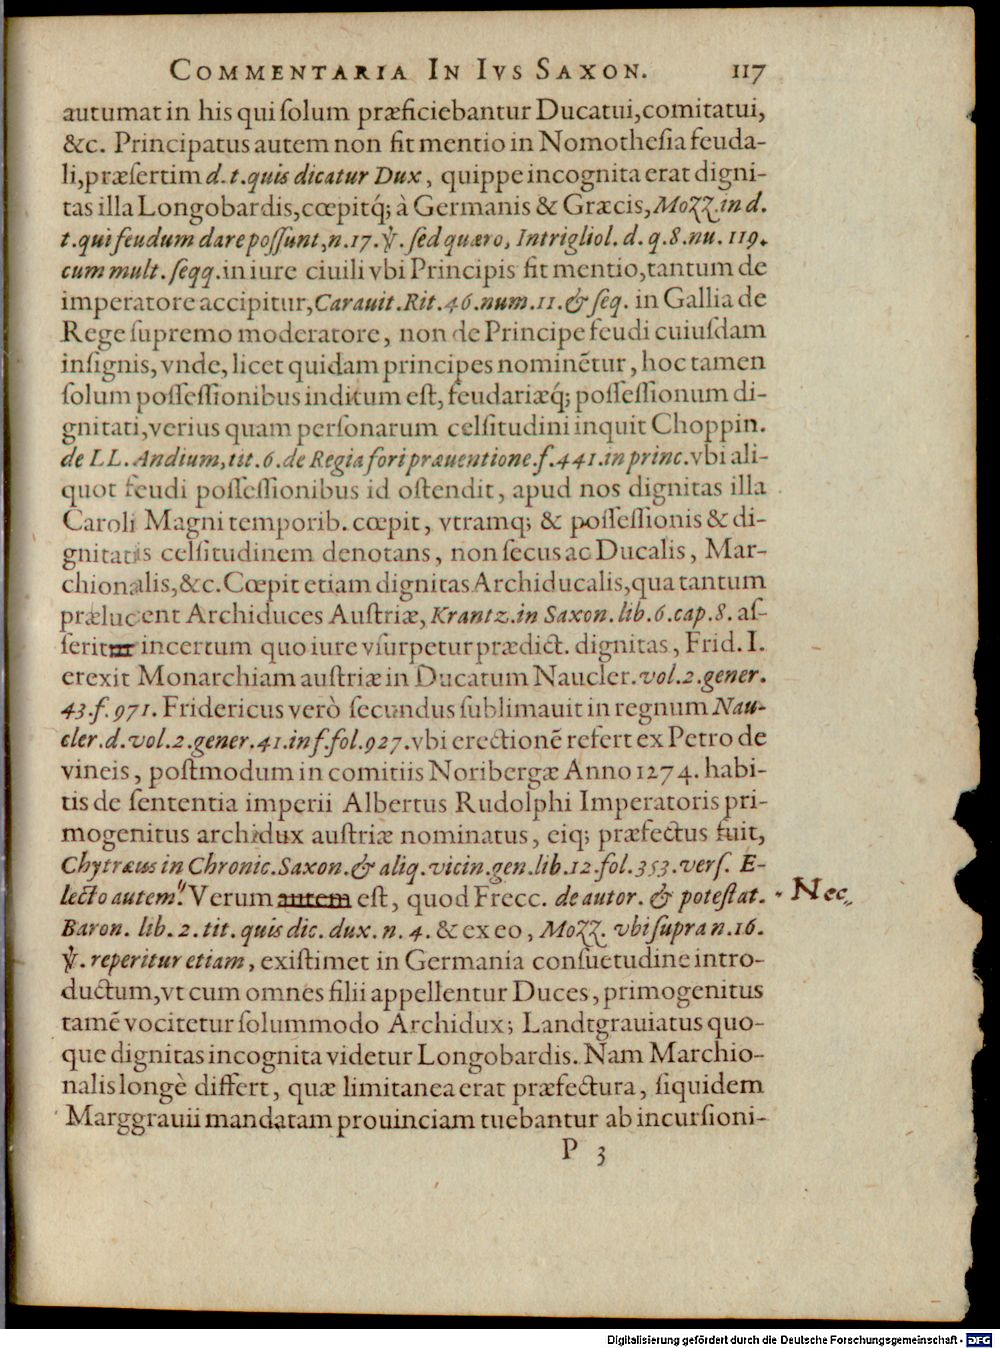 COMMENTARIA IN IVS SAXON. 117
autumat in his qui ſolum præficiebantur Ducatui, comitatui,
&c. Principatus autem non fit mentio in Nomotheſia feuda-
li, præſertim d. t. quis dicatur Dux, quippe incognita erat digni-
tas illa Longobardis, cœpitq́; à Germanis & Græcis, Mozz. in d.
t. qui feudum dare poſſunt, n. 17. ℣. ſed quæro, Intrigliol. d. q. 8. nu. 119.
cum mult. ſeqq. in iure ciuili vbi Principis fit mentio, tantum de
imperatore accipitur, Carauit. Rit. 46. num. 11. & ſeq. in Gallia de
Rege ſupremo moderatore, non de Principe feudi cuiuſdam
inſignis, vnde, licet quidam principes nominẽtur, hoc tamen
ſolum poſſeſſionibus inditum eſt, feudariæq́; poſſeſſionum di-
gnitati, verius quam perſonarum celſitudini inquit Choppin.
de LL. Andium, tit. 6. de Regia fori præuentione. f. 441. in princ. vbi ali-
quot feudi poſſeſſionibus id oſtendit, apud nos dignitas illa
Caroli Magni temporib. cœpit, vtramq; & poſſeſſionis & di-
gnitatis celſitudinem denotans, non ſecus ac Ducalis, Mar-
chionalis, &c. Cœpit etiam dignitas Archiducalis, qua tantum
prælucent Archiduces Auſtriæ, Krantz. in Saxon. lib. 6. cap. 8. aſ-
ſerit incertum quo iure vſurpetur prædict. dignitas, Frid. I.
erexit Monarchiam auſtriæ in Ducatum Naucler. vol. 2. gener.
43. f. 971. Fridericus verò ſecundus ſublimauit in regnum Nau-
cler. d. vol. 2. gener. 41. in f. fol. 927. vbi erectionẽ refert ex Petro de
vineis, poſtmodum in comitiis Noribergæ Anno 1274. habi-
tis de ſententia imperii Albertus Rudolphi Imperatoris pri-
mogenitus archidux auſtriæ nominatus, eiq; præfectus fuit,
Chytræus in Chronic. Saxon. & aliq. vicin. gen. lib. 12. fol. 353. verſ. E-
lecto autem. Verum autem eſt, quod Frecc. de autor. & poteſtat. Nec
Baron. lib. 2. tit. quis dic. dux. n. 4. & ex eo, Mozz. vbi ſupra n. 16.
℣. reperitur etiam, exiſtimet in Germania conſuetudine intro-
ductum, vt cum omnes filii appellentur Duces, primogenitus
tamẽ vocitetur ſolummodo Archidux; Landtgrauiatus quo-
que dignitas incognita videtur Longobardis. Nam Marchio-
nalis longè differt, quæ limitanea erat præfectura, ſiquidem
Marggrauii mandatam prouinciam tuebantur ab incurſioni-
P 3
Digitalisierung gefördert durch die Deutsche Forschungsgemeinschaft - DFG